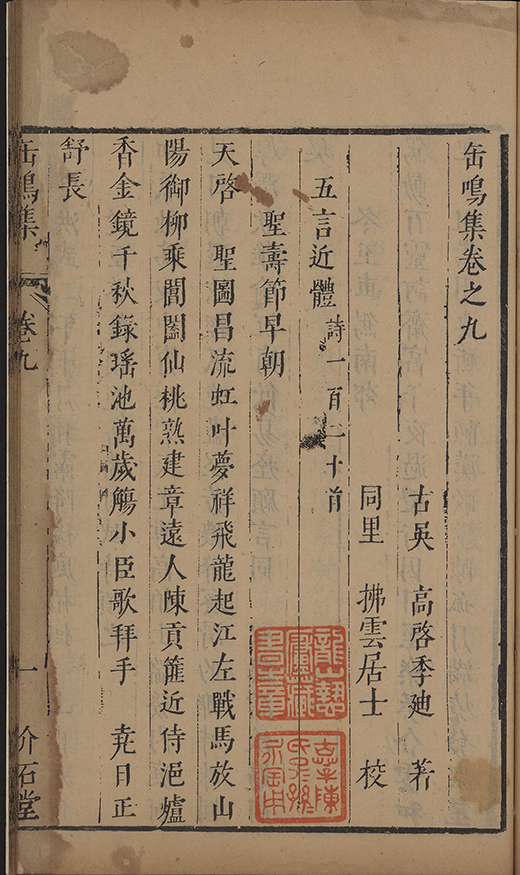 缶鳴集卷之九
古吳　高啓季廸　著
同里　拂雲居士　校
五言近體詩一百二十首
聖壽節早朝
天啓　聖圖昌流虹叶夢祥飛龍起江左戰馬放山
陽御柳乘閶闔仙桃熟建章遠人陳貢篚近侍浥爐
香金鏡千秋錄瑶池萬歲觴小臣歌拜手　尭日正
舒長
缶鳴集　卷九　一　介石堂